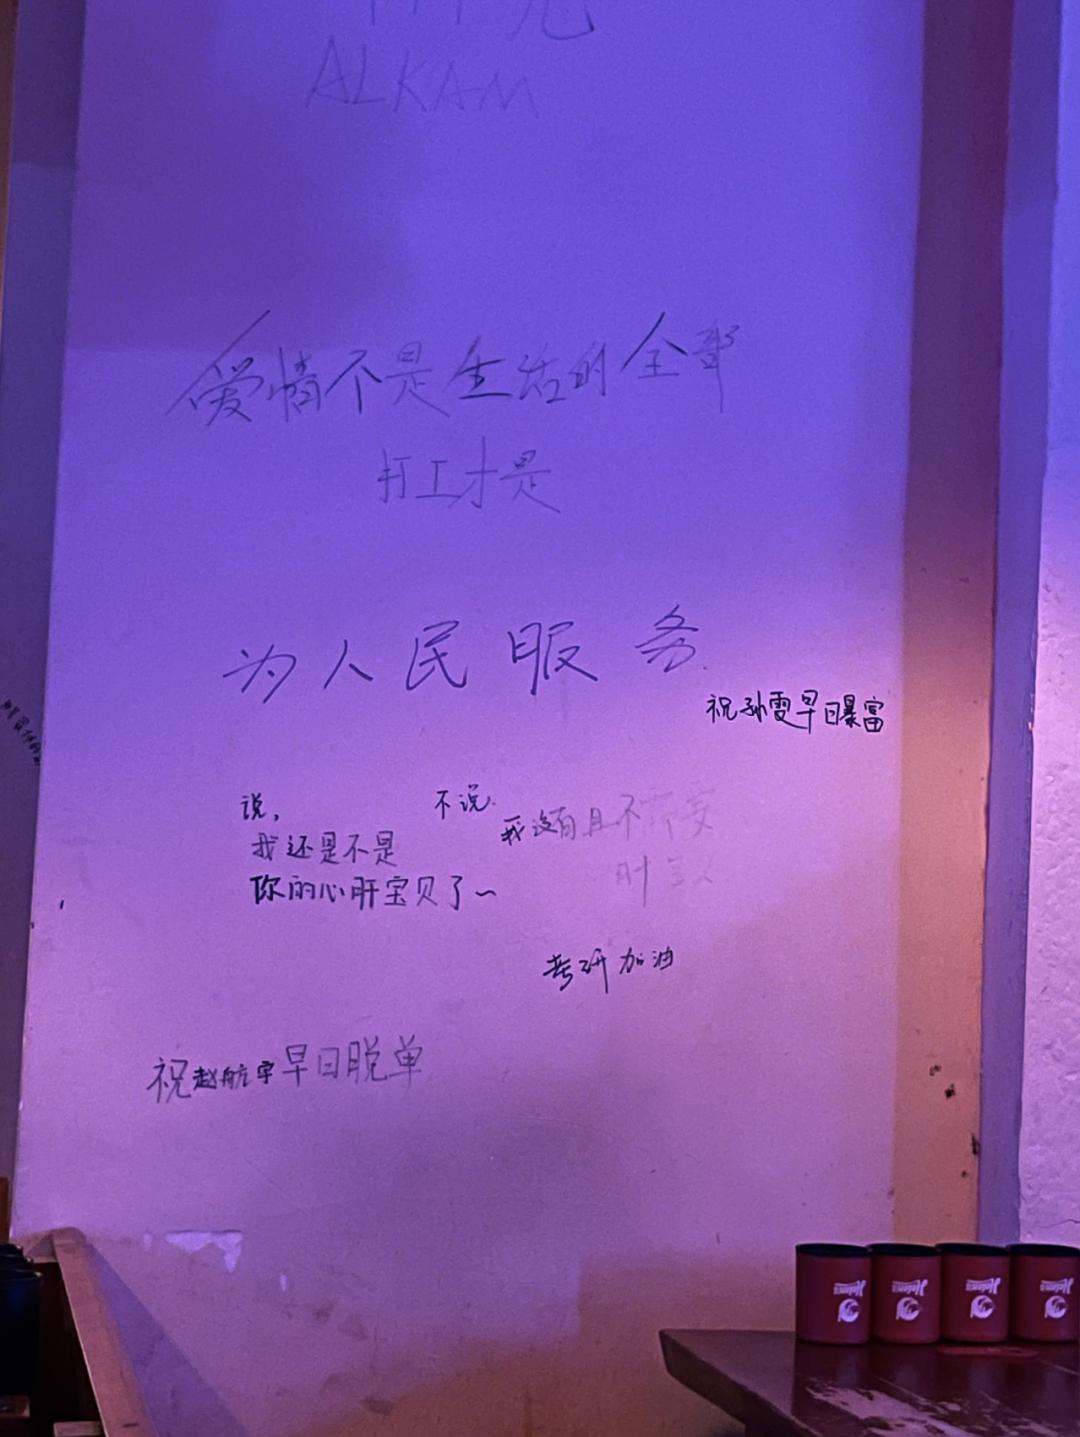 ALKAM
爱情不是生活的全部
打工才是
为人民服务
祝孙雯早日暴富
说,
我还是不是
你的心肝宝贝了~
不说.
我没有且不需要
肝宝
考研加油
祝赵航宇早日脱单
Helen's
Helen's
Helen's
Helen's